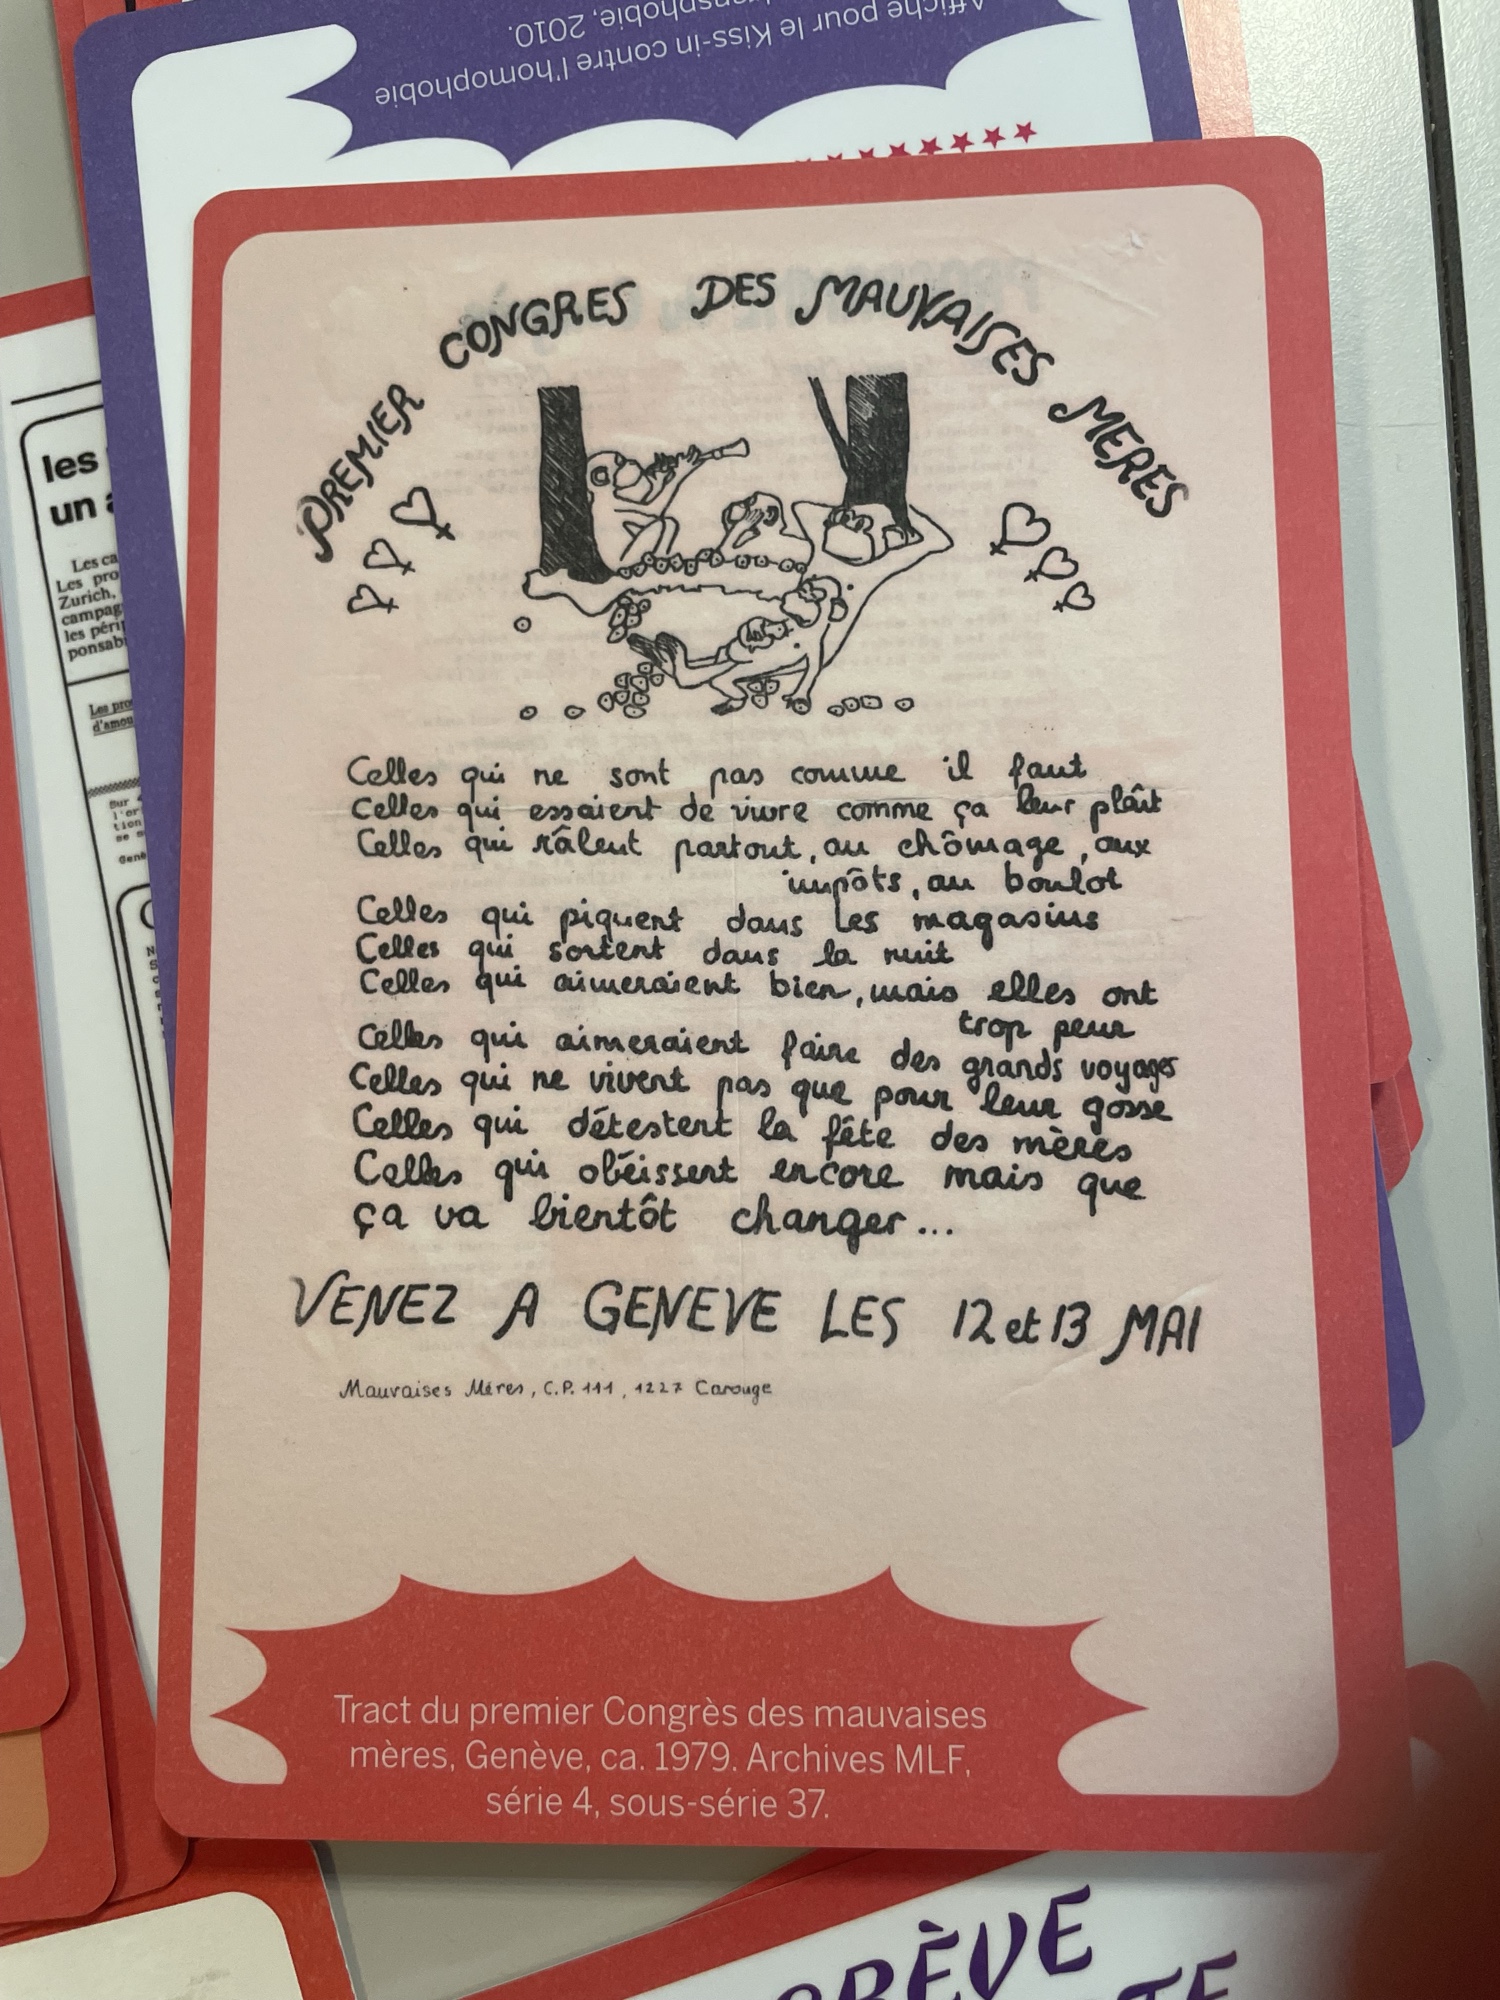 Affiche pour le Kiss-in contre l'homophobie
2010.
PREMIER CONGRES DES MAUVAISES MERES
Celles qui ne sont pas comme il faut
Celles qui essaient de vivre comme ça leur plaît
Celles qui râlent partout, au chômage, aux
impôts, au boulot
Celles qui piquent dans les magasins
Celles qui sortent dans la nuit
Celles qui aimeraient bien, mais elles ont
trop peur
Celles qui aimeraient faire des grands voyages
Celles qui ne vivent pas que pour leur gosse
Celles qui détestent la fête des mères
Celles qui obéissent encore mais que
ça va bientôt changer...
VENEZ A GENEVE LES 12 et 13 MAI
Mauvaises Mères, C.P. 111, 1227 Carouge
Tract du premier Congrès des mauvaises
mères, Genève, ca. 1979. Archives MLF,
série 4, sous-série 37.
les
un
Les
Les pro
Zurich,
campag
les péri
ponsab
Les pro
d'amou
Sur
tion
Genè